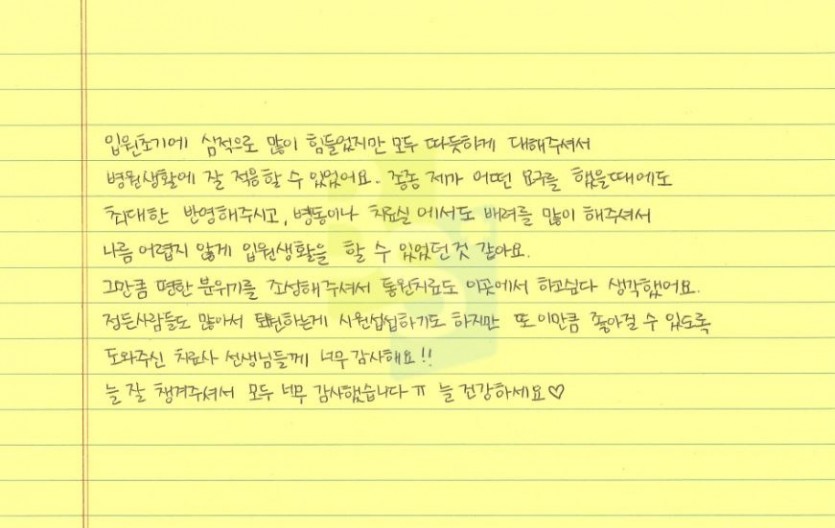 입원초기에 심적으로 많이 힘들었지만 모두 따듯하게 대해주셔서
병원생활에 잘 적응할 수 있었어요. 종종 제가 어떤 요구를 했을때에도
최대한 반영해주시고, 병동이나 치료실에서도 배려를 많이 해주셔서
나름 어렵지 않게 입원생활을 할 수 있었던것 같아요.
그만큼 편한 분위기를 조성해주셔서 통원치료도 이곳에서 하고싶다 생각했어요.
정든사람들도 많아서 퇴원하는게 시원섭섭하기도 하지만 또 이만큼 좋아질 수 있도록
도와주신 치료사 선생님들께 너무 감사해요!!
늘 잘 챙겨주셔서 모두 너무 감사했습니다ㅠ 늘 건강하세요♡